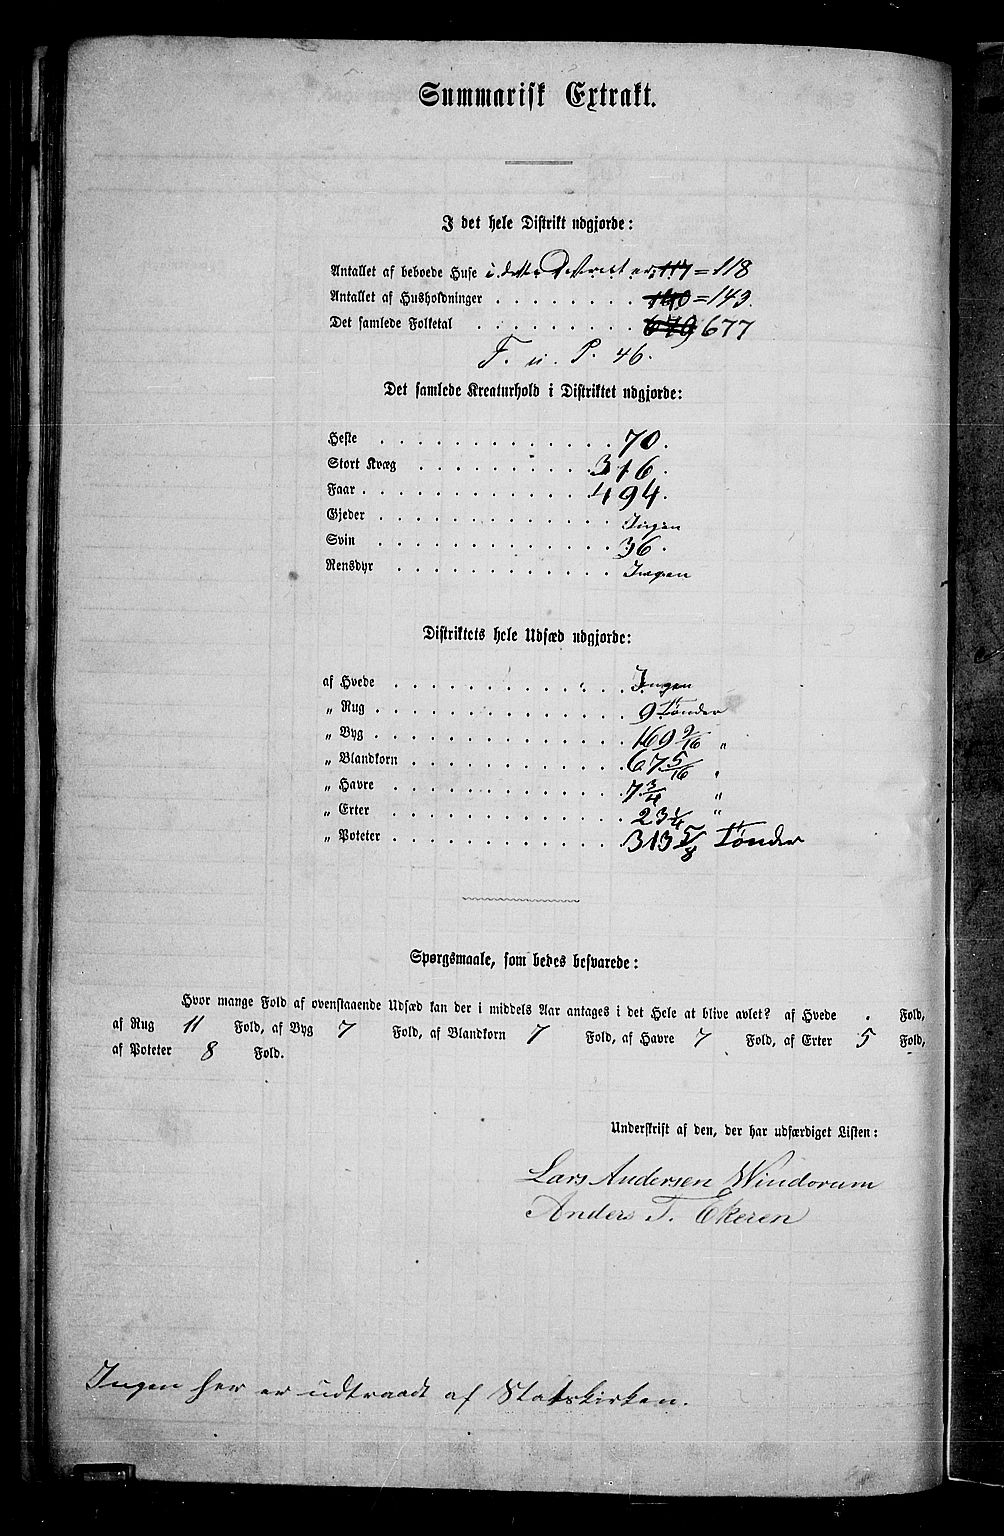 Summarisk Extrakt.
I det hele Distrikt udgjorde:
Antallet af beboede Huse i dette Destrect er 117 = 118
Antallet af Husholdninger . . . . . . . . 140 = 143.
Det samlede Folketal . . . . . . . . . 679 677
F. u. P. 46.
Det samlede Kreaturhold i Distriktet udgjorde:
Heste . . . . . . . . . . . . . 70.
Stort Kvæg . . . . . . . . . . 316.
Faar . . . . . . . . . . . . . 494.
Gjeder . . . . . . . . . . . . Ingen
Svin . . . . . . . . . . . . . 36.
Rensdyr . . . . . . . . . . . . Ingen
Distriktets hele Udsæd udgjorde:
af Hvede . . . . . . . . . . . . Ingen
„ Rug . . . . . . . . . . . . . 9 Tønder
„ Byg . . . . . . . . . . . . . 169 9/16 „
„ Blandkorn . . . . . . . . . . 67 5/16 „
„ Havre . . . . . . . . . . . . 7 3/4 „
„ Erter . . . . . . . . . . . . 23 1/4 „
„ Poteter . . . . . . . . . . . 313 5/8 Tønder
Spørgsmaale, som bedes besvarede:
Hvor mange Fold af ovenstaaende Udsæd kan der i middels Aar antages i det Hele at blive avlet? af Hvede . Fold,
af Rug 11 Fold, af Byg 7 Fold, af Blandkorn 7 Fold, af Havre 7 Fold, af Erter 5 Fold,
af Poteter 8 Fold.
Underskrift af den, der har udfærdiget Listen:
Lars Andersen Windorum
Anders T. Ekeren
Ingen her er udtraadt af Statskirken.